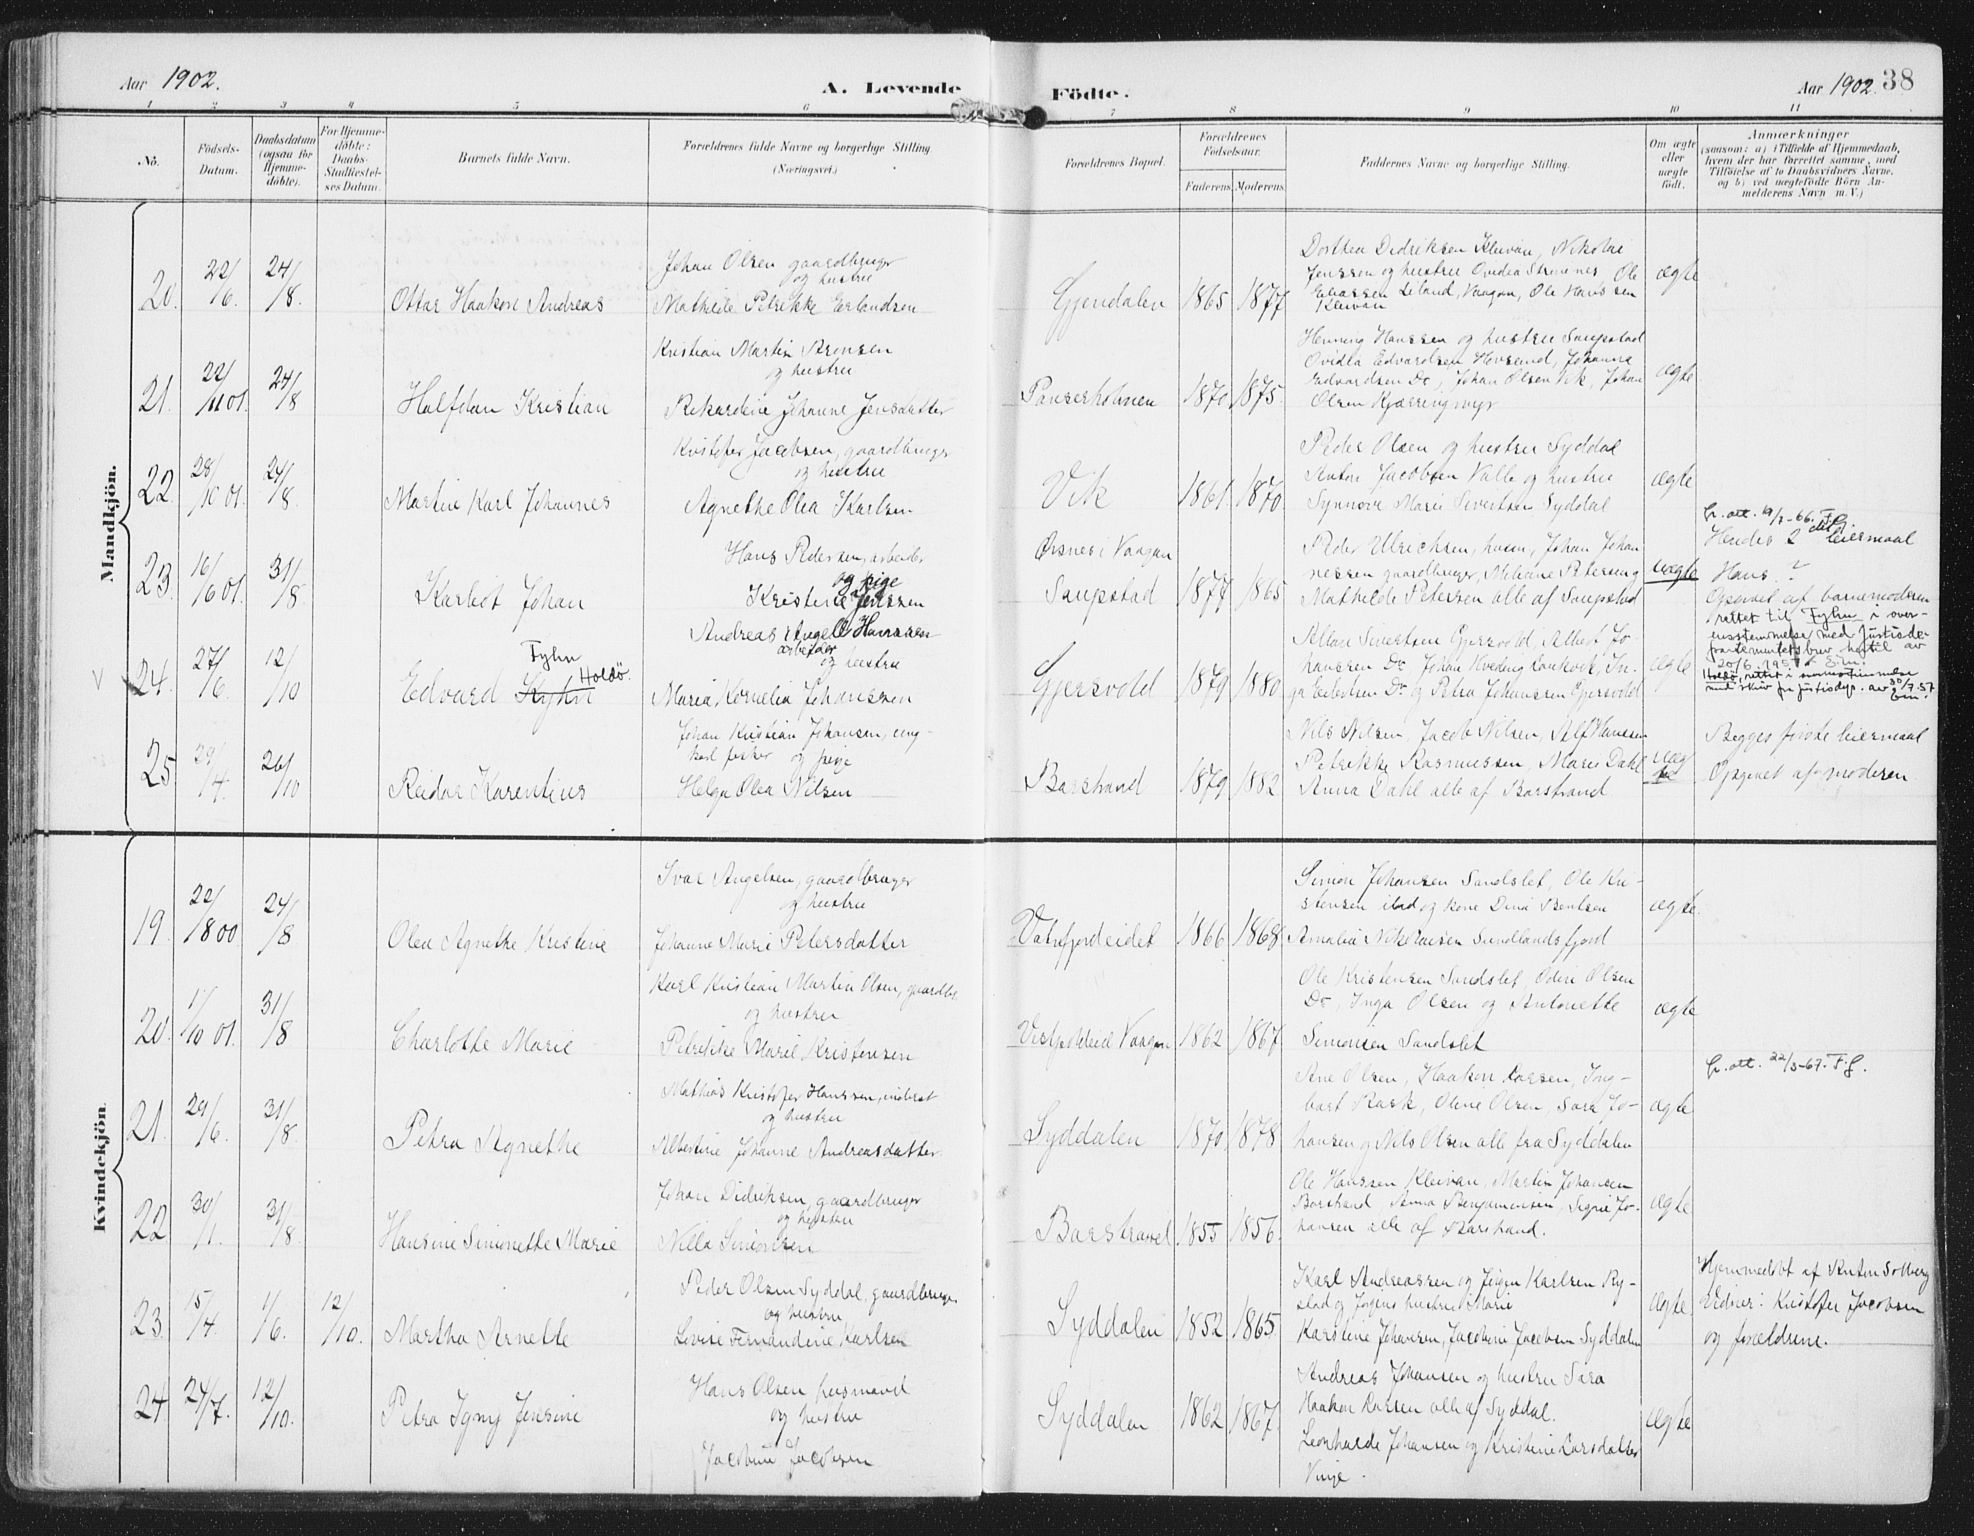 Aar 1902.
A. Levende
Födte.
Aar 1902. 38
1 2 3 4 5 6 7 8 9 10 11
No.
Födsels-
Datum.
Daabsdatum
(ogsaa for
Hjemme-
döbte).
For Hjemme-
döbte:
Daabs-
Stadfæstel-
ses Datum.
Barnets fulde Navn.
Forældrenes fulde Navne og borgerlige Stilling
(Næringsvei.)
Forældrenes Bopæl.
Forældrenes
Födselsaar.
Faderens Moderens
Faddernes Navne og borgerlige Stilling.
Om ægte
eller
uægte
födt.
Anmærkninger
(saasom: a) i Tilfælde af Hjemmedaab,
hvem der har forrettet samme, med
Tilföielse af to Daabsvidners Navne,
og b) ved uægtefödte Börn An-
melderens Navn m. V.)
Mandkjön.
20. 22/6. 24/8.
Ottar Haakon Andreas
Johan Olsen gaardbruger
og hustru
Mathilde Petrikke Erlandsen
Gjendalen 1865 1877
Dorthea Didriksen Kleivan, Nikolai
Jenssen og hustru Ovidea Strønes Ole
Eliassen Liland, Vaagan, Ole Hanssen
Kleivan
ægte
21. 22/11 01. 24/8
Halfdan Kristian
Kristian Martin Aronsen
og hustru
Rikardine Johanne Jensdatter
Panserholmen 1870 1875.
Henning Hanssen og hustru Saupstad
Ovidia Edvardsen Hovsund, Johanna
Edvardsen Do, Johan Olsen Vik, Johan
Olsen Kjærringmyr
ægte
22. 28/10 01. 24/8
Martin Karl Johannes
Kristofer Jacobsen, gaardbruger
og hustru
Agnethe Olea Karlsen
Vik 1861 1870
Peder Olsen og hustru Syddal
Anton Jacobsen Valle og hustru
Synnøve Marie Sivertsen Syddal
ægte
23. 16/6 01. 31/8
Karlot Johan
Hans Pedersen, arbeider
og pige
Kristine Jenssen
Ørsnes i Vaagan
Saupstad 1877 1865
Peder Ulrichsen, husm, Johan Johan
nessen gaardbruger, Meliane Petersen og
Mathilde Petersen alle af Saupstad
uægte
fr. att. 19/7-66. F.G
Hendes 2det leiermaal
Hans ?
Opgivet af barnemoderen
24. 27/6. 12/10
Edvard
Fyhn
Holdö.
Andreas Angel Hanssen
arbeider
og hustru
Maria Kornelia Johanssen
Gjersvold 1879 1880
Allan Sivertsen Gjersvold, Albert Jo-
hanssen Do Johan Kveding Laukvik, In-
ga Eilertsen Do og Petra Johanssen Gjersvold
ægte
rettet til Fyhn i over-
ensstemmelse med Justisde-
partementets brev hertil av
20/6 1951
Holdö, rettet i overensstemmelse
med skriv fra justisdep. av 30/7.57
25. 29/4. 26/10
Reidar Karentius
Johan Kristian Johansen, ung-
karl fisker og pige
Helga Olea Nilsen
Barstrand 1879 1882
Nils Nilsen, Jacob Nilsen, Alf Hanssen
Petrikke Rasmussen, Marie Dahl
Anna Dahl alle af Barstrand.
uæg
te
Begges første leiermaal
Opgivet af moderen
Kvindekjön.
19. 22/8 00. 24/8
Olea Agnethe Kristine
Ivar Angelsen, gaardbruger
og hustru
Johanne Marie Petersdatter
Vatnfjordeidet 1866 1868
Simon Johansen Sandslet, Ole Kri-
stensen ibid og kone Dina Bentsen
Amalia Nikolaisen Sundlandsfjord
ægte.
20. 1/10 01. 31/8
Charlotte Marie
Karl Kristian Martin Olsen, gaardbr.
og hustru
Petrikke Marie Kristensen
Vaagan 1862 1867.
Ole Kristensen Sandslet, Odin Olsen
Do, Inga Olsen og Antonette
Simonsen Sandslet
ægte
21. 29/6. 31/8.
Petra Agnethe
Mathias Kristofer Hanssen, inderst
og hustru
Albertine Johanne Andreasdatter.
Syddalen 1870 1878
Ane Olsen, Haakon Larsen, Ing-
bart Rask, Oline Olsen, Sara Jo-
hansen og Nils Olsen alle fra Syddalen
ægte
fr. att. 22/3-67. F.G.
22. 30/1. 31/8.
Hansine Simonette Marie
Johan Didriksen, gaardbruger
og hustru
Nilla Simonsen
Barstrand 1855 1856.
Ole Hanssen Kleivan, Martin Johansen
Barstrand Anna Benjaminsen, Signe Jo-
hansen alle af Barstrand.
ægte
23. 15/4. 1/6. 12/10.
Martha Arnette
Peder Olsen Syddal, gaardbruger
og hustru
Lovise Fernandine Karlsen
Syddalen 1852 1865.
Karl Andreassen og Jörgen Karlsen Ry-
stad og Jörgens hustru Marie
Karstine Johansen, Jacobine Jacobsen Syddalen
ægte
Hjemmedøbt af Anton Solberg
Vidner: Kristofer Jacobsen
og forældrene.
24. 24/7. 12/10.
Petra Igny Jensine
Hans Olsen husmand
og hustru
Jacobine Jacobsen
Syddalen 1862 1867.
Andreas Johansen og hustru Sara
Haakon Larsen alle af Syddal.
Leonharde Johansen og Kristine Larsdatter
Vinje.
ægte